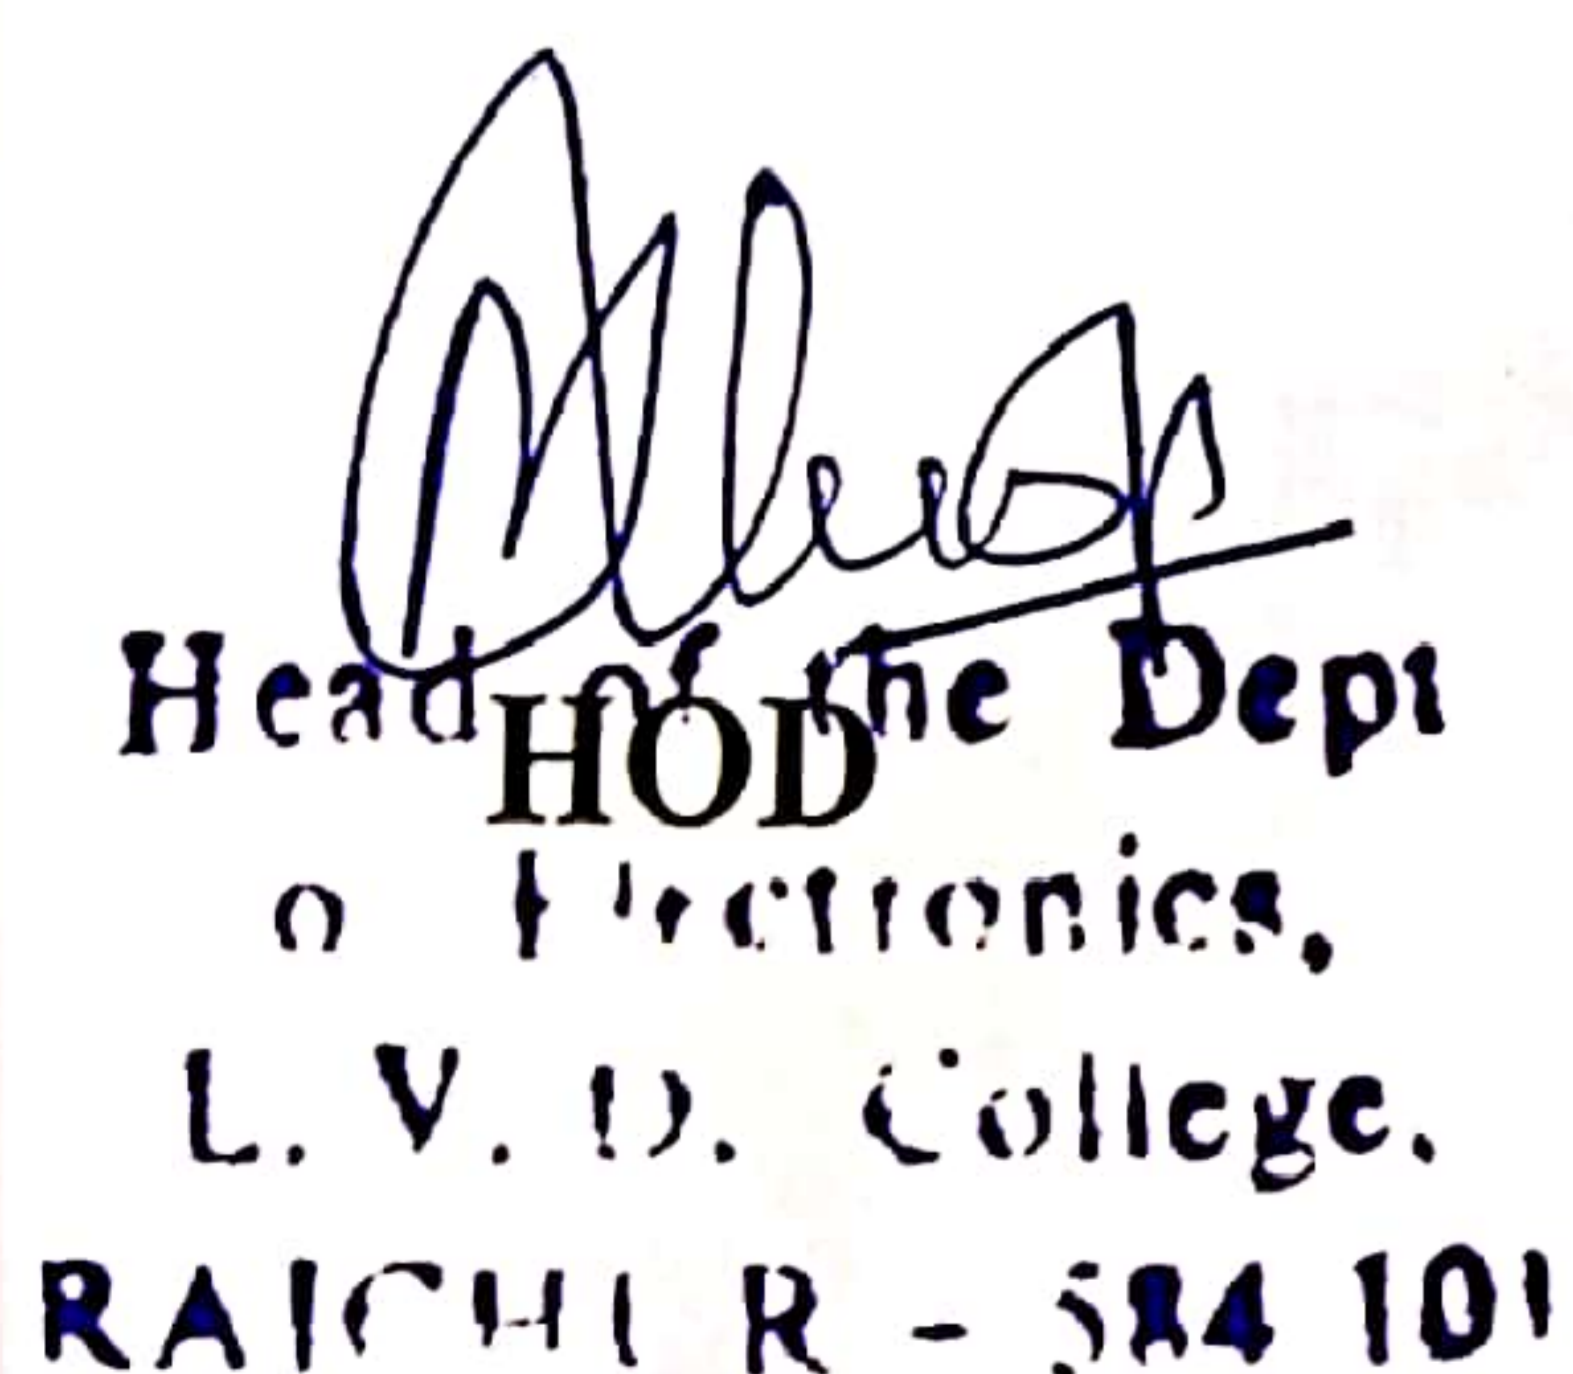 Head of the Dept
HOD
of Electronics,
L. V. D. College.
RAICHUR - 584 101